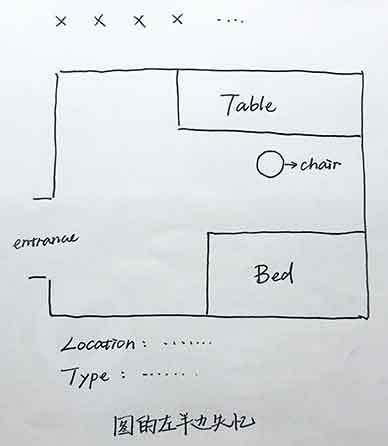 × × × × ....
Table
→chair
entrance
Bed
Location: .......
Type: .......
图的左半边失忆